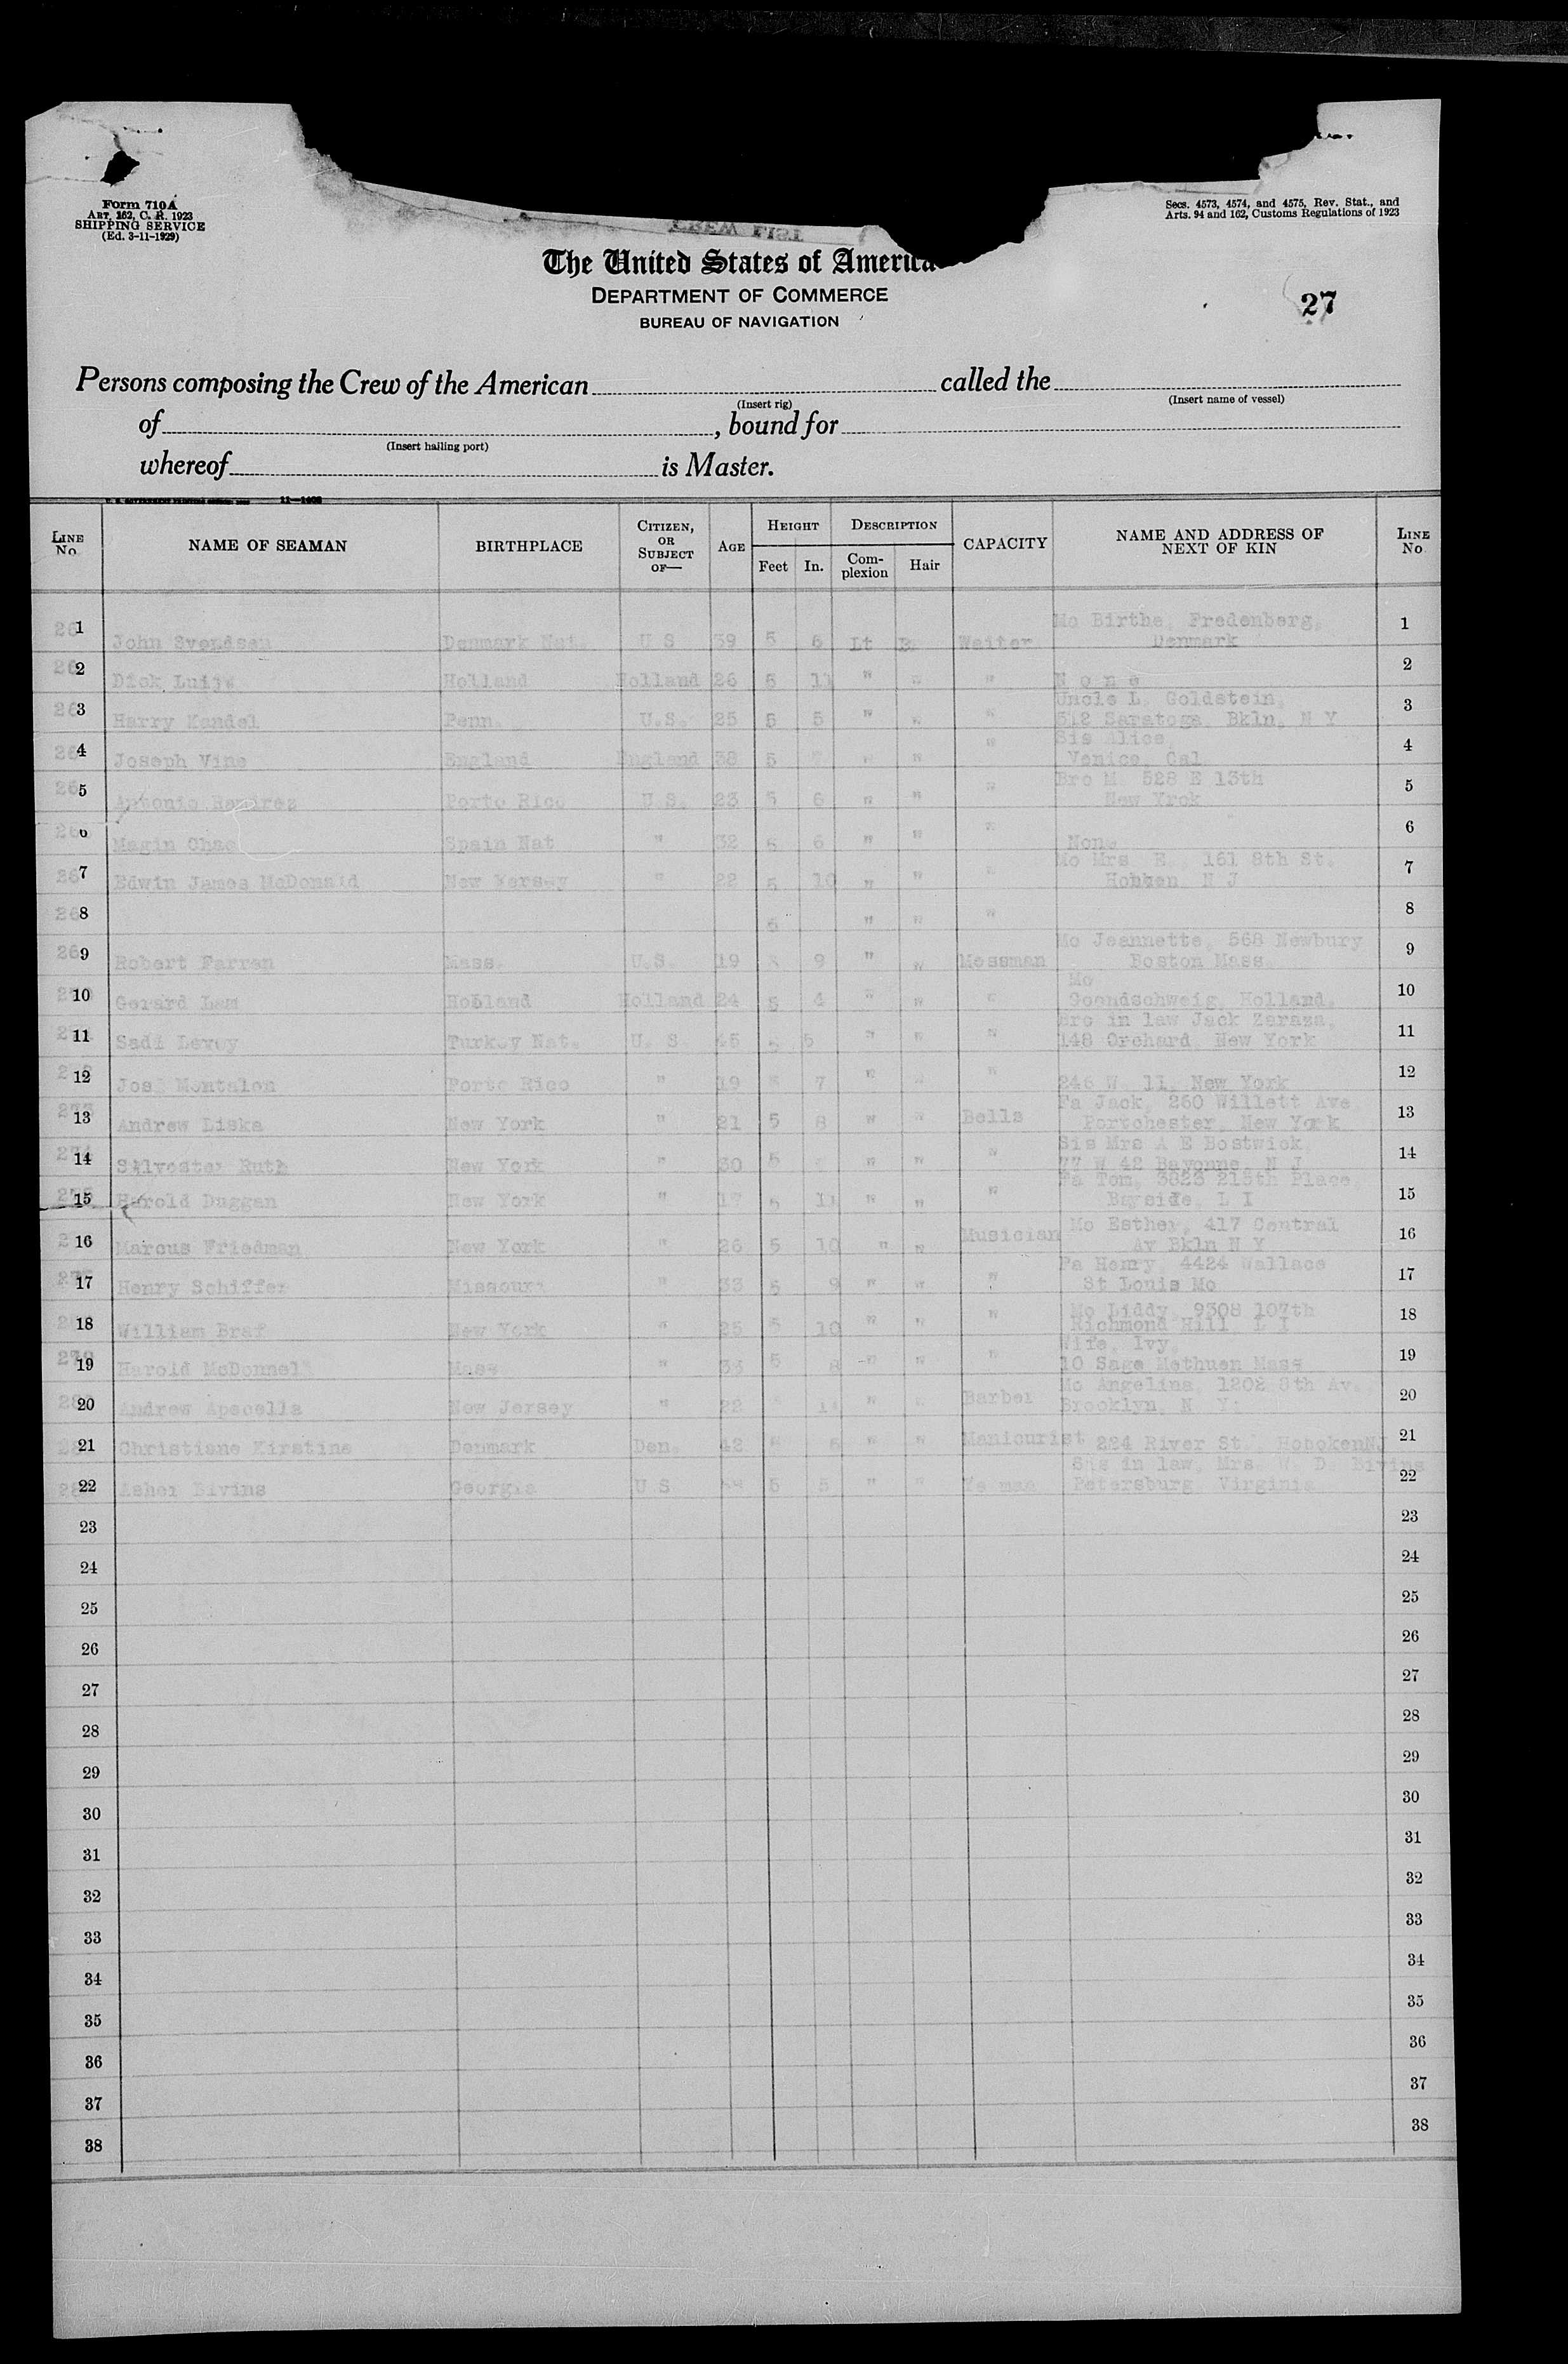 Form 710A
Art. 162, C. R. 1923
SHIPPING SERVICE
(Ed. 3-11-1929)
Secs. 4573, 4574, and 4575, Rev. Stat., and
Arts. 94 and 162, Customs Regulations of 1923
CREW LIST
The United States of America
DEPARTMENT OF COMMERCE
BUREAU OF NAVIGATION
27
Persons composing the Crew of the American called the
(Insert rig) (Insert name of vessel)
of , bound for
(Insert hailing port)
whereof is Master.
11—1408
LINE No. NAME OF SEAMAN BIRTHPLACE CITIZEN, OR SUBJECT OF— AGE HEIGHT Feet In. DESCRIPTION Complexion Hair CAPACITY NAME AND ADDRESS OF NEXT OF KIN LINE No.
Mo Birthe, Fredenberg,
1 John Svendsen Denmark Nat. U S 39 5 6 Lt B. Waiter Denmark 1
2 Dick Holland Holland 26 5 11 " " " N o n e 2
Uncle L. Goldstein,
3 Harry Kandel Penn. U.S. 25 5 5 " " " 512 Saratoga, Bkln, N Y 3
Sis Alice,
4 Joseph Vine England England 38 5 " " " Venice, Cal. 4
Bro M. 528 E 13th
5 Antonio Ramirez Porto Rico U.S. 23 5 6 " " " New Yrok 5
6 Magin Chao Spain Nat " 32 5 6 " " " None 6
Mo Mrs E., 161 8th St.
7 Edwin James McDonald New Kersey " 22 5 10 " " " N J 7
8 5 " " " 8
Mo Jeannette, 568 Newbury
9 Robert Farren Mass. U.S. 19 9 " " Messman Boston Mass. 9
Mo
10 Gerard Lam Holland Holland 24 5 4 " " " Goendschweig, Holland, 10
Bro in law Jack Zaraza,
11 Sadi Levoy Turkey Nat. U. S. 45 5 5 " " " 148 Orchard, New York 11
12 Jose Montalon Porto Rico " 19 7 " " " 246 W. 11, New York 12
Fa Jack, 260 Willett Ave
13 Andrew Liska New York " 21 5 8 " " Bells Portchester, New York 13
Sis Mrs A E Bostwick,
14 Silvester Ruth New York " 30 5 " " " 77 W 42 Bayonne, N J 14
Fa Tom, 3823 215th Place,
15 Harold Duggan New York " 17 5 11 " " " Bayside, L I 15
Mo Esther, 417 Central
16 Marcus Friedman New York " 26 5 10 " " Musician Av Bkln N Y 16
Fa Henry, 4424 Wallace
17 Henry Schiffer Missouri " 33 5 9 " " " St Louis Mo 17
Mo Liddy, 9308 107th
18 William Braf New York " 25 5 10 " " " Richmond Hill, L I 18
Wife, Ivy,
19 Harold McDonnell Mass " 33 5 8 " " " 10 Sage Methuen Mass 19
Mo Angelina, 1202 8th Av.
20 Andrew Apacella New Jersey " 22 11 " " Barber Brooklyn, N. Y. 20
21 Christiane Kirstine Denmark Den. 42 6 " " Manicurist 224 River St., HobokenNJ 21
Sis in law, Mrs. W. D. Bivins
22 Asher Bivins Georgia U S 5 5 " " Ye man Petersburg Virginia 22
23 23
24 24
25 25
26 26
27 27
28 28
29 29
30 30
31 31
32 32
33 33
34 34
35 35
36 36
37 37
38 38